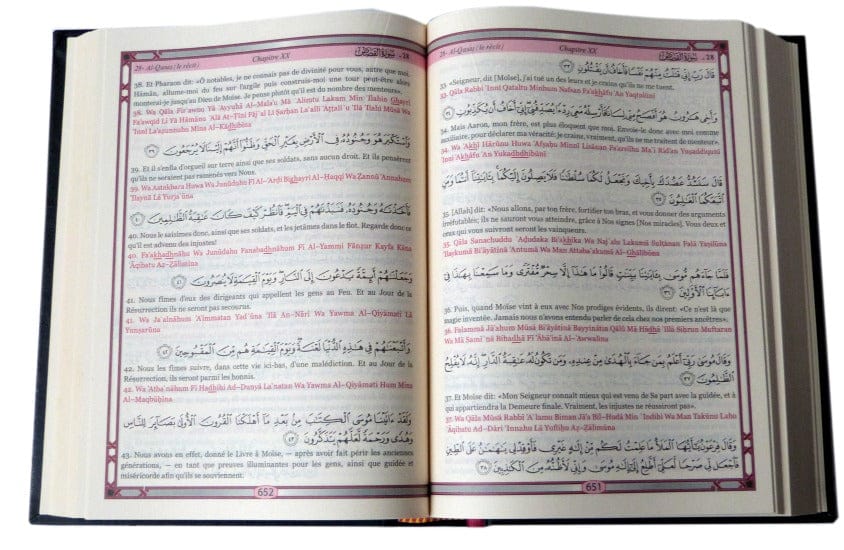 28- Al-Qasas (le récit)   Chapitre XX   سورة القصص -28
قَالَ رَبِّ إِنِّي قَتَلْتُ مِنْهُمْ نَفْسًا فَأَخَافُ أَن يَقْتُلُونِ ٣٣
33. «Seigneur, dit [Moïse], j'ai tué un des leurs et je crains qu'ils ne me tuent.
33. Qāla Rabbi 'Innī Qataltu Minhum Nafsan Fa'akhāfu 'An Yaqtulūni
وَأَخِي هَارُونُ هُوَ أَفْصَحُ مِنِّي لِسَانًا فَأَرْسِلْهُ مَعِيَ رِدْءًا يُصَدِّقُنِي إِنِّي أَخَافُ أَن يُكَذِّبُونِ ٣٤
34. Mais Aaron, mon frère, est plus éloquent que moi. Envoie-le donc avec moi comme
auxiliaire, pour déclarer ma véracité: je crains, vraiment, qu'ils ne me traitent de menteur».
34. Wa 'Akhī Hārūnu Huwa 'Afşaĥu Minnī Lisānan Fa'arsilhu Ma`ī Rid'an Yuşaddiqunī
'Innī 'Akhāfu 'An Yukadhdhibūni
قَالَ سَنَشُدُّ عَضُدَكَ بِأَخِيكَ وَنَجْعَلُ لَكُمَا سُلْطَانًا فَلَا يَصِلُونَ إِلَيْكُمَا بِآيَاتِنَا أَنتُمَا وَمَنِ
اتَّبَعَكُمَا الْغَالِبُونَ ٣٥
35. [Allah] dit: «Nous allons, par ton frère, fortifier ton bras, et vous donner des arguments
irréfutables; ils ne sauront vous atteindre, grâce à Nos signes [Nos miracles]. Vous deux et
ceux qui vous suivront seront les vainqueurs.
35. Qāla Sanachuddu `Ađudaka Bi'akhīka Wa Naj`alu Lakumā Sulţānan Falā Yaşilūna
'Ilaykumā Bi'āyātinā 'Antumā Wa Man Attaba`akumā Al-Ghālibūna
فَلَمَّا جَاءَهُم مُّوسَى بِآيَاتِنَا بَيِّنَاتٍ قَالُوا مَا هَذَا إِلَّا سِحْرٌ مُّفْتَرًى وَمَا سَمِعْنَا بِهَذَا فِي
آبَائِنَا الْأَوَّلِينَ ٣٦
36. Puis, quand Moïse vint à eux avec Nos prodiges évidents, ils dirent: «Ce n'est là que
magie inventée. Jamais nous n'avons entendu parler de cela chez nos premiers ancêtres».
36. Falammā Jā'ahum Mūsá Bi'āyātinā Bayyinātin Qālū Mā Hādhā 'Illā Siĥrun Muftaran
Wa Mā Sami`nā Bihadhā Fī 'Ābā'inā Al-'Awwalīna
وَقَالَ مُوسَى رَبِّي أَعْلَمُ بِمَن جَاءَ بِالْهُدَى مِنْ عِندِهِ وَمَن تَكُونُ لَهُ عَاقِبَةُ الدَّارِ إِنَّهُ لَا يُفْلِحُ
الظَّالِمُونَ ٣٧
37. Et Moïse dit: «Mon Seigneur connaît mieux qui est venu de Sa part avec la guidée, et à
qui appartiendra la Demeure finale. Vraiment, les injustes ne réussiront pas».
37. Wa Qāla Mūsá Rabbī 'A`lamu Biman Jā'a Bil-Hudá Min `Indihi Wa Man Takūnu Lahu
`Āqibatu Ad-Dāri 'Innahu Lā Yufliĥu Až-Žālimūna
وَقَالَ فِرْعَوْنُ يَا أَيُّهَا الْمَلَأُ مَا عَلِمْتُ لَكُم مِّنْ إِلَهٍ غَيْرِي فَأَوْقِدْ لِي يَا هَامَانُ عَلَى الطِّينِ
فَاجْعَل لِّي صَرْحًا لَّعَلِّي أَطَّلِعُ إِلَى إِلَهِ مُوسَى وَإِنِّي لَأَظُنُّهُ مِنَ الْكَاذِبِينَ ٣٨
651
28- Al-Qasas (le récit)   Chapitre XX   سورة القصص -28
38. Et Pharaon dit: «Ô notables, je ne connais pas de divinité pour vous, autre que moi.
Hāmān, allume-moi du feu sur l'argile puis construis-moi une tour peut-être alors
monterai-je jusqu'au Dieu de Moïse. Je pense plutôt qu'il est du nombre des menteurs».
38. Wa Qāla Fir`awnu Yā 'Ayyuhā Al-Mala'u Mā `Alimtu Lakum Min 'Ilahin Ghayrī
Fa'awqid Lī Yā Hāmānu `Alá Aţ-Ţīni Fāj`al Lī Şarĥan La`allī 'Aţţali`u 'Ilá 'Ilahi Mūsá Wa
'Innī La'ažunnuhu Mina Al-Kādhibīna
وَاسْتَكْبَرَ هُوَ وَجُنُودُهُ فِي الْأَرْضِ بِغَيْرِ الْحَقِّ وَظَنُّوا أَنَّهُمْ إِلَيْنَا لَا يُرْجَعُونَ ٣٩
39. Et il s'enfla d'orgueil sur terre ainsi que ses soldats, sans aucun droit. Et ils pensèrent
qu'ils ne seraient pas ramenés vers Nous.
39. Wa Astakbara Huwa Wa Junūduhu Fī Al-'Arđi Bighayri Al-Ĥaqqi Wa Žannū 'Annahum
'Ilaynā Lā Yurja`ūna
فَأَخَذْنَاهُ وَجُنُودَهُ فَنَبَذْنَاهُمْ فِي الْيَمِّ فَانظُرْ كَيْفَ كَانَ عَاقِبَةُ الظَّالِمِينَ ٤٠
40. Nous le saisîmes donc, ainsi que ses soldats, et les jetâmes dans le flot. Regarde donc ce
qu'il est advenu des injustes!
40. Fa'akhadhnāhu Wa Junūdahu Fanabadhnāhum Fī Al-Yammi Fānžur Kayfa Kāna
`Āqibatu Až-Žālimīna
وَجَعَلْنَاهُمْ أَئِمَّةً يَدْعُونَ إِلَى النَّارِ وَيَوْمَ الْقِيَامَةِ لَا يُنصَرُونَ ٤١
41. Nous fîmes d'eux des dirigeants qui appellent les gens au Feu. Et au Jour de la
Résurrection ils ne seront pas secourus.
41. Wa Ja`alnāhum 'A'immatan Yad`ūna 'Ilá An-Nāri Wa Yawma Al-Qiyāmati Lā
Yunşarūna
وَأَتْبَعْنَاهُمْ فِي هَذِهِ الدُّنْيَا لَعْنَةً وَيَوْمَ الْقِيَامَةِ هُم مِّنَ الْمَقْبُوحِينَ ٤٢
42. Nous les fîmes suivre, dans cette vie ici-bas, d'une malédiction. Et au Jour de la
Résurrection, ils seront parmi les honnis.
42. Wa 'Atba`nāhum Fī Hadhihi Ad-Dunyā La`natan Wa Yawma Al-Qiyāmati Hum Mina
Al-Maqbūĥīna
وَلَقَدْ آتَيْنَا مُوسَى الْكِتَابَ مِن بَعْدِ مَا أَهْلَكْنَا الْقُرُونَ الْأُولَى بَصَائِرَ لِلنَّاسِ
وَهُدًى وَرَحْمَةً لَّعَلَّهُمْ يَتَذَكَّرُونَ ٤٣
43. Nous avons en effet, donné le Livre à Moïse, – après avoir fait périr les anciennes
générations, – en tant que preuves illuminantes pour les gens, ainsi que guidée et
miséricorde afin qu'ils se souviennent.
652